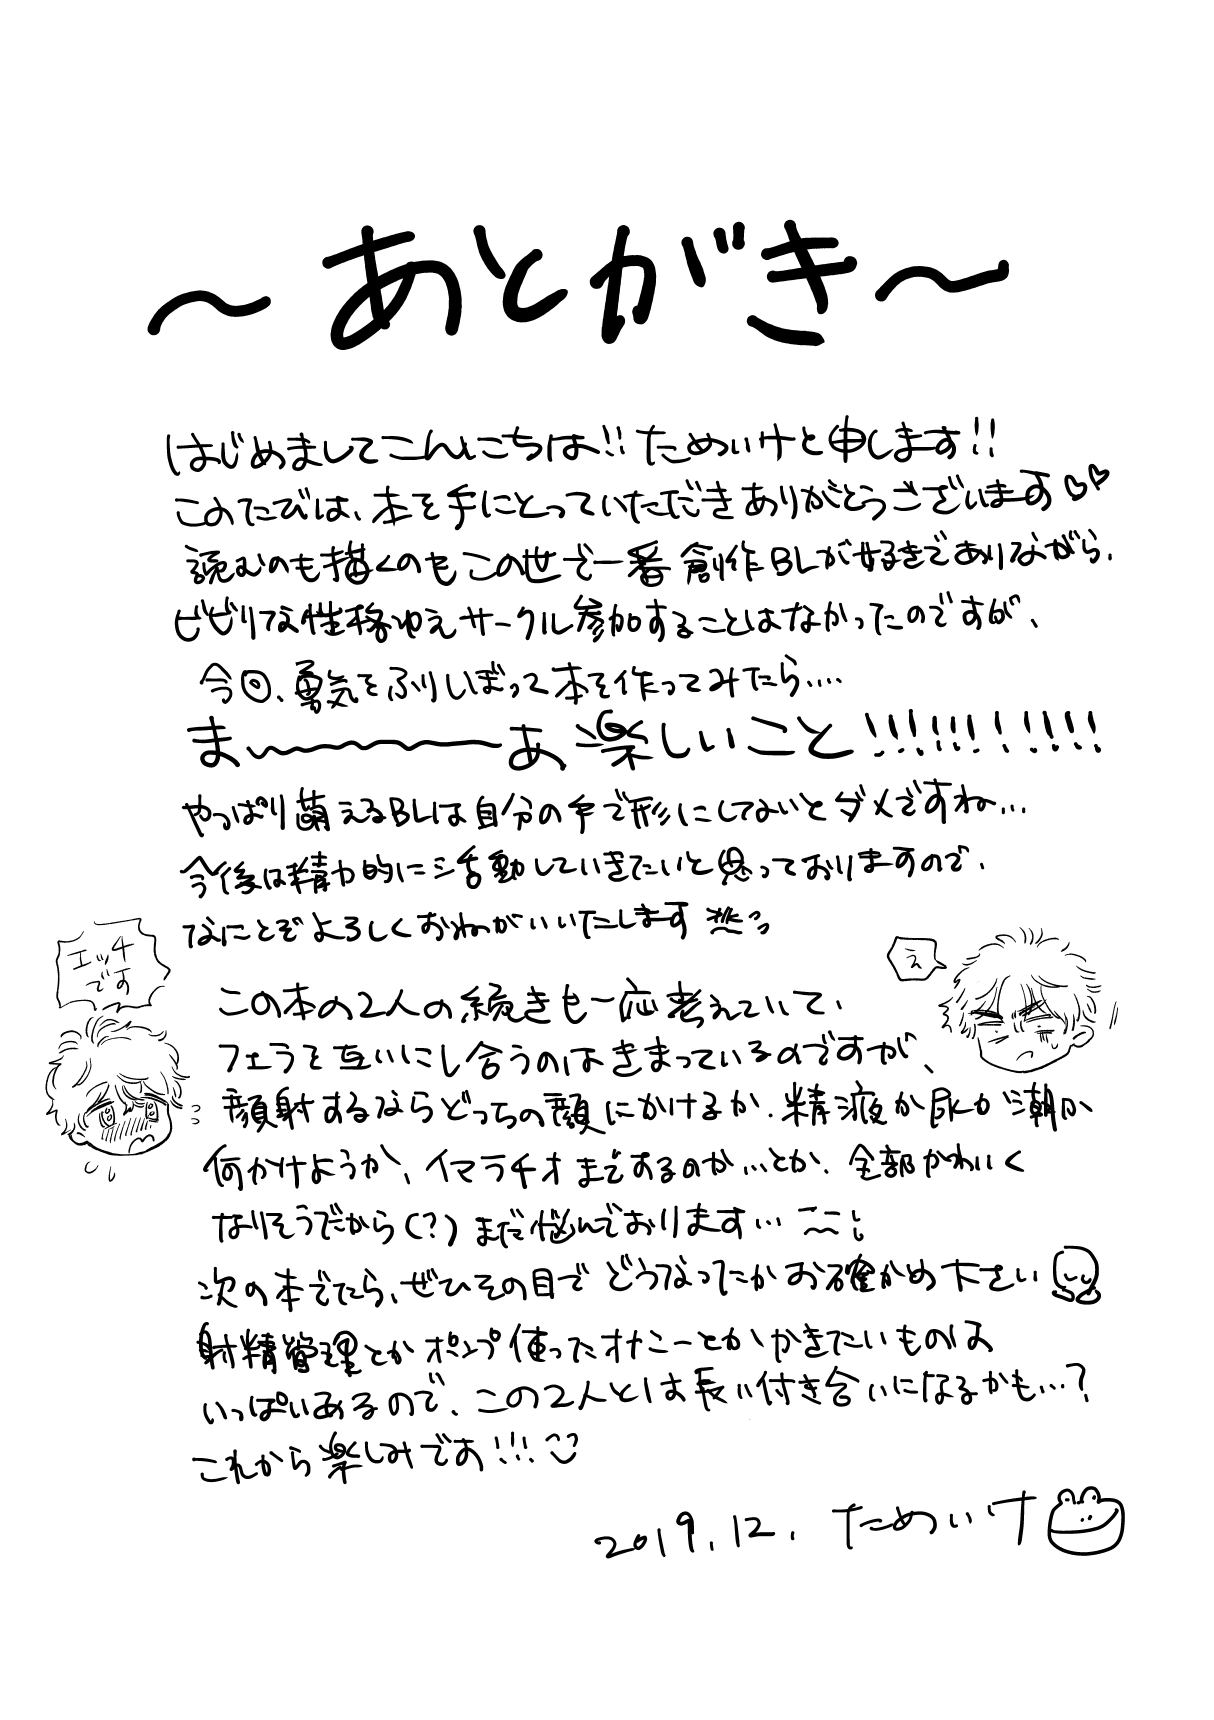 ～あとがき～
はじめましてこんにちは!! ためいけと申します!!
このたびは、本を手にとっていただきありがとうございます♡♡
読むのも描くのもこの世で一番創作BLが好きでありながら、
ビビリな性格ゆえサークル参加することはなかったのですが、
今回、勇気をふりしぼって本を作ってみたら....
ま〜〜〜〜あ楽しいこと!!!!!!!!!!!
やっぱり萌えるBLは自分の手で形にしてないとダメですね...
今後は精力的に活動していきたいと思っておりますので、
なにとぞよろしくおねがいいたします
エッチ
です
え
この本の2人の続きも一応考えていて、
フェラを互いにし合うのはきまっているのですが、
顔射するならどっちの顔にかけるか、精液か尿か潮か
何かけようか、イマラチオまでするのか...とか、全部かわいく
なりそうだから(?)まだ悩んでおります...
次の本でたら、ぜひその目でどうなったかお確かめ下さい
射精管理とかポンプ使ったオナニーとかかきたいものは
いっぱいあるので、この2人とは長い付き合いになるかも...?
これから楽しみです!!!
2019.12. ためいけ